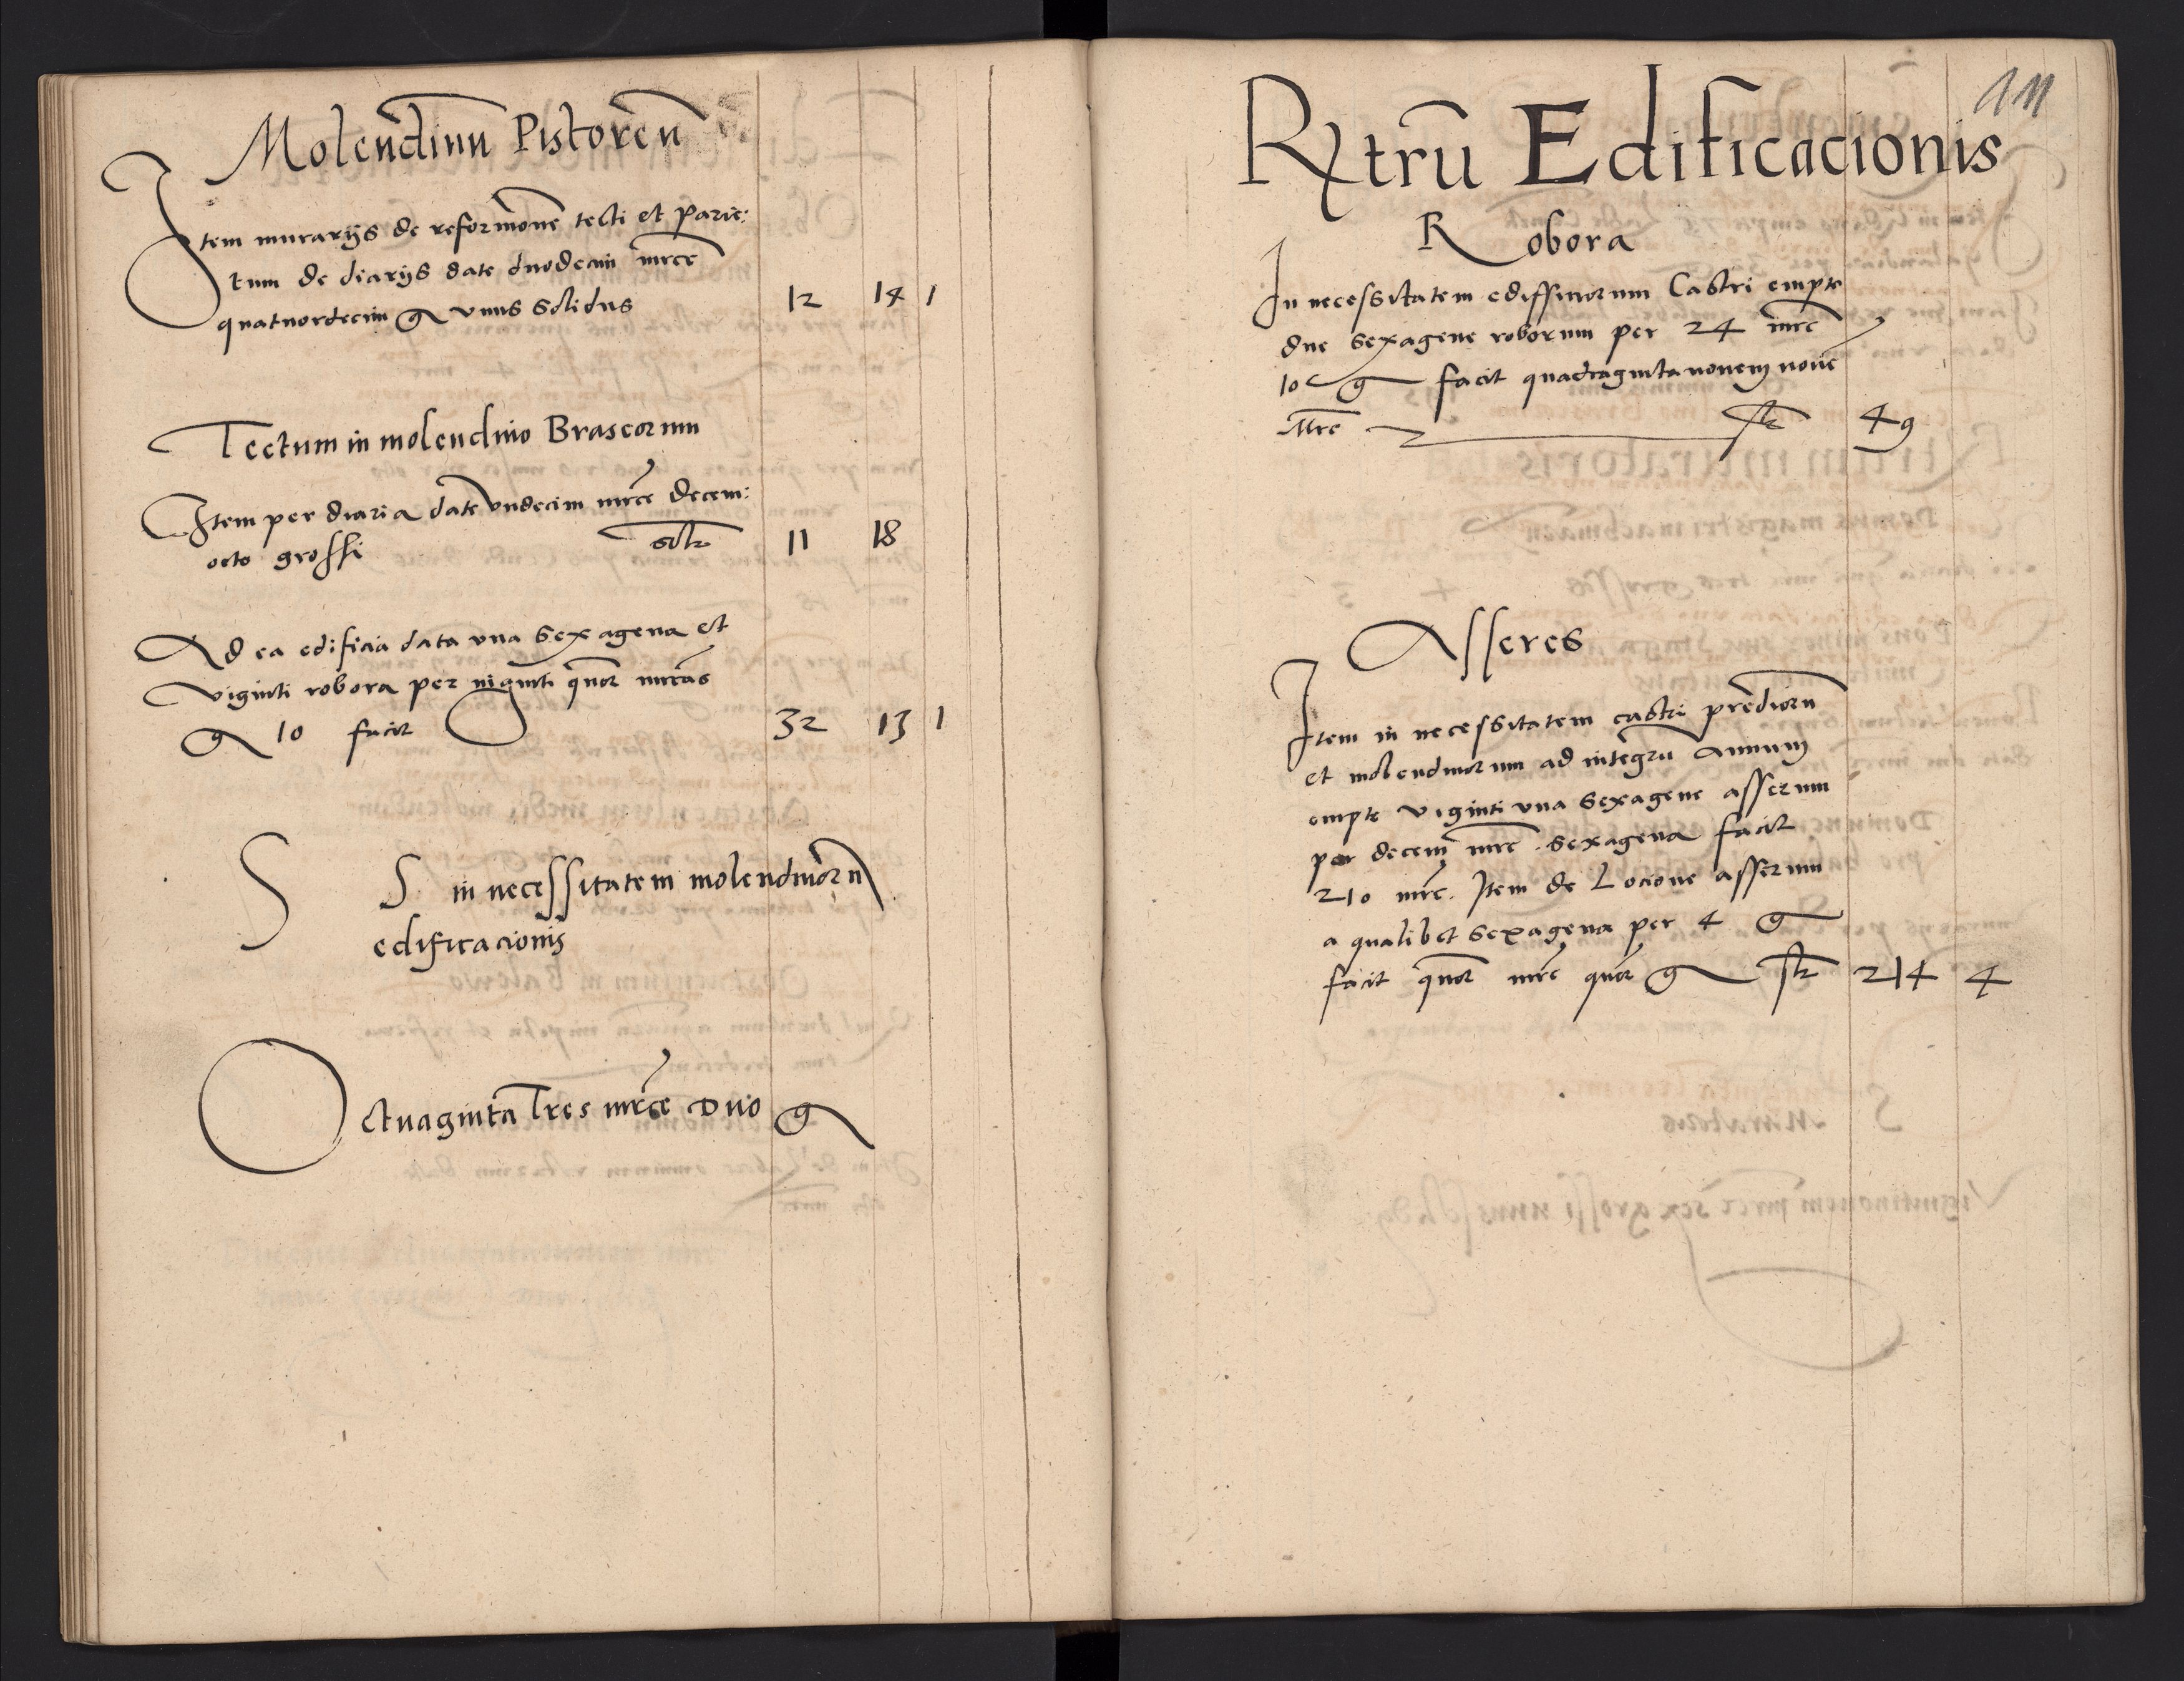 Molendinu Pistoren
Item murarijs de reformone tecti et parie:
tum de diarijs date duodecim mrce
quatuordecim g vnus solidus 12 14 1
Tectum in molendino Braseorum
Item per diaria date vndecim mrce decem:
octo grossi soltr 11 18
Ad ea edificia data vna sexagena et
viginti robora per viginti quor mrcas
g 10 facit 32 13 1
S S in necessitatem molendinoru
edificacionis
Octuaginta Tres mrce Duo g
111
Rxtru Edificacionis
Robora
In necessitatem edifficiorum Castri empte
due sexagene roborum per 24 mrc
10 g facit quadragintanonem
Mrc str 49
Asseres
Item in necessitatem castri predioru
et molendinorum ad integru annum
empte viginti vna sexagene asserum
per decem mrc sexagena facit
210 mrc. Item de Locione asserum
a qualibet sexagena per 4 g
facit quor mrc quor g str 214 4